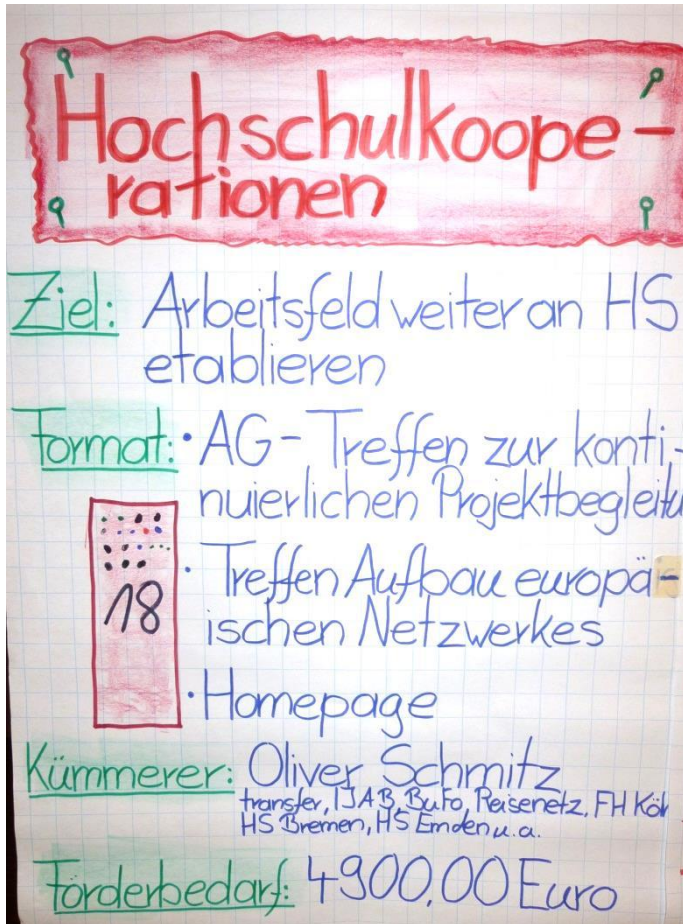 Hochschulkoope-
rationen
Ziel: Arbeitsfeld weiter an HS
etablieren
Format: • AG-Treffen zur konti-
nuierlichen Projektbegleitu
• Treffen Aufbau europä-
ischen Netzwerkes
18
• Homepage
Kümmerer: Oliver Schmitz
transfer, IJAB, BuFo, Reisenetz, FH Köl
HS Bremen, HS Emden u.a.
Förderbedarf: 4900,00 Euro